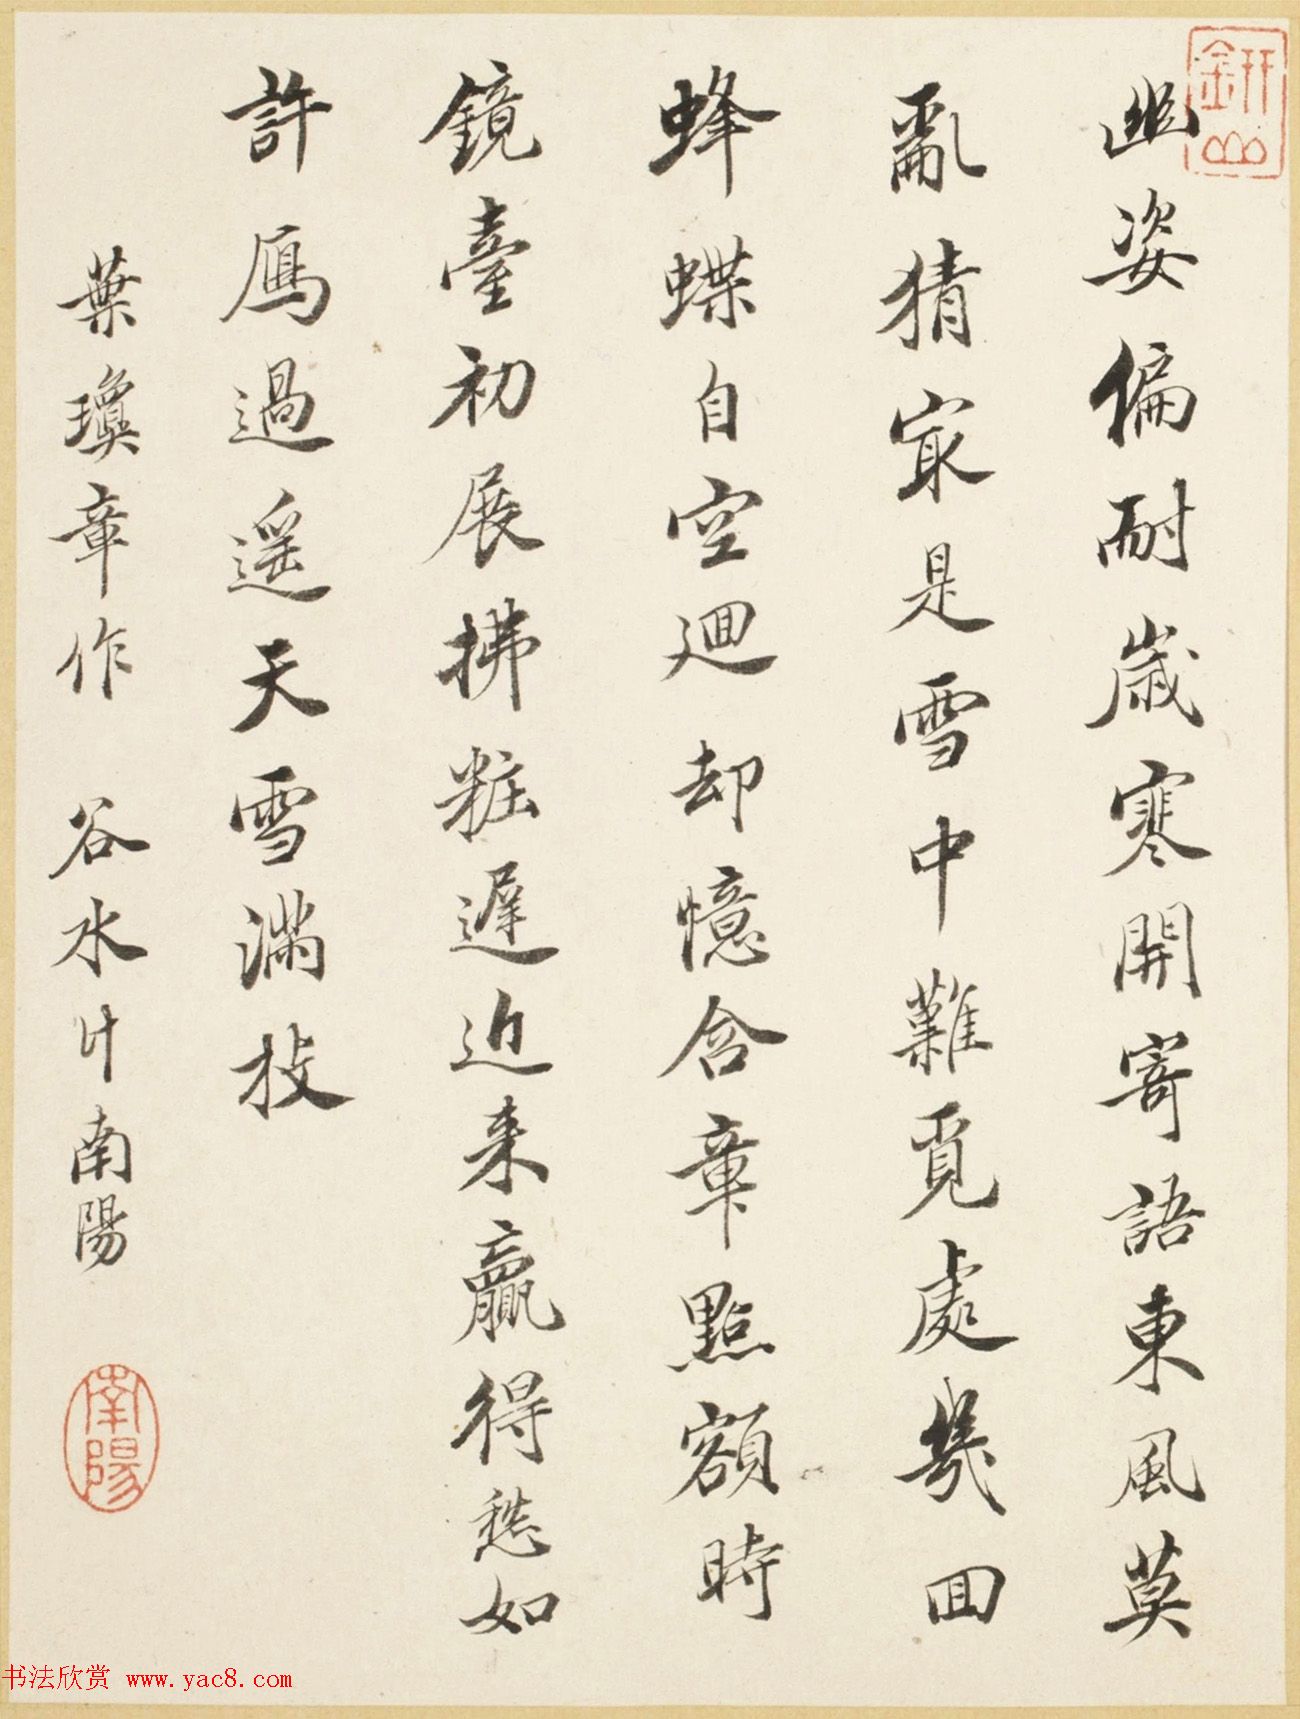 幽姿偏耐歲寒開寄語東風莫
亂猜冣是雪中難覓處幾回
蜂蝶自空迴却憶含章點額時
鏡臺初展拂粧遲近来贏得愁如
許鴈過遥天雪滿枝
葉瓊章作 谷水叶南陽
南陽
研山
书法欣赏 www.yac8.com